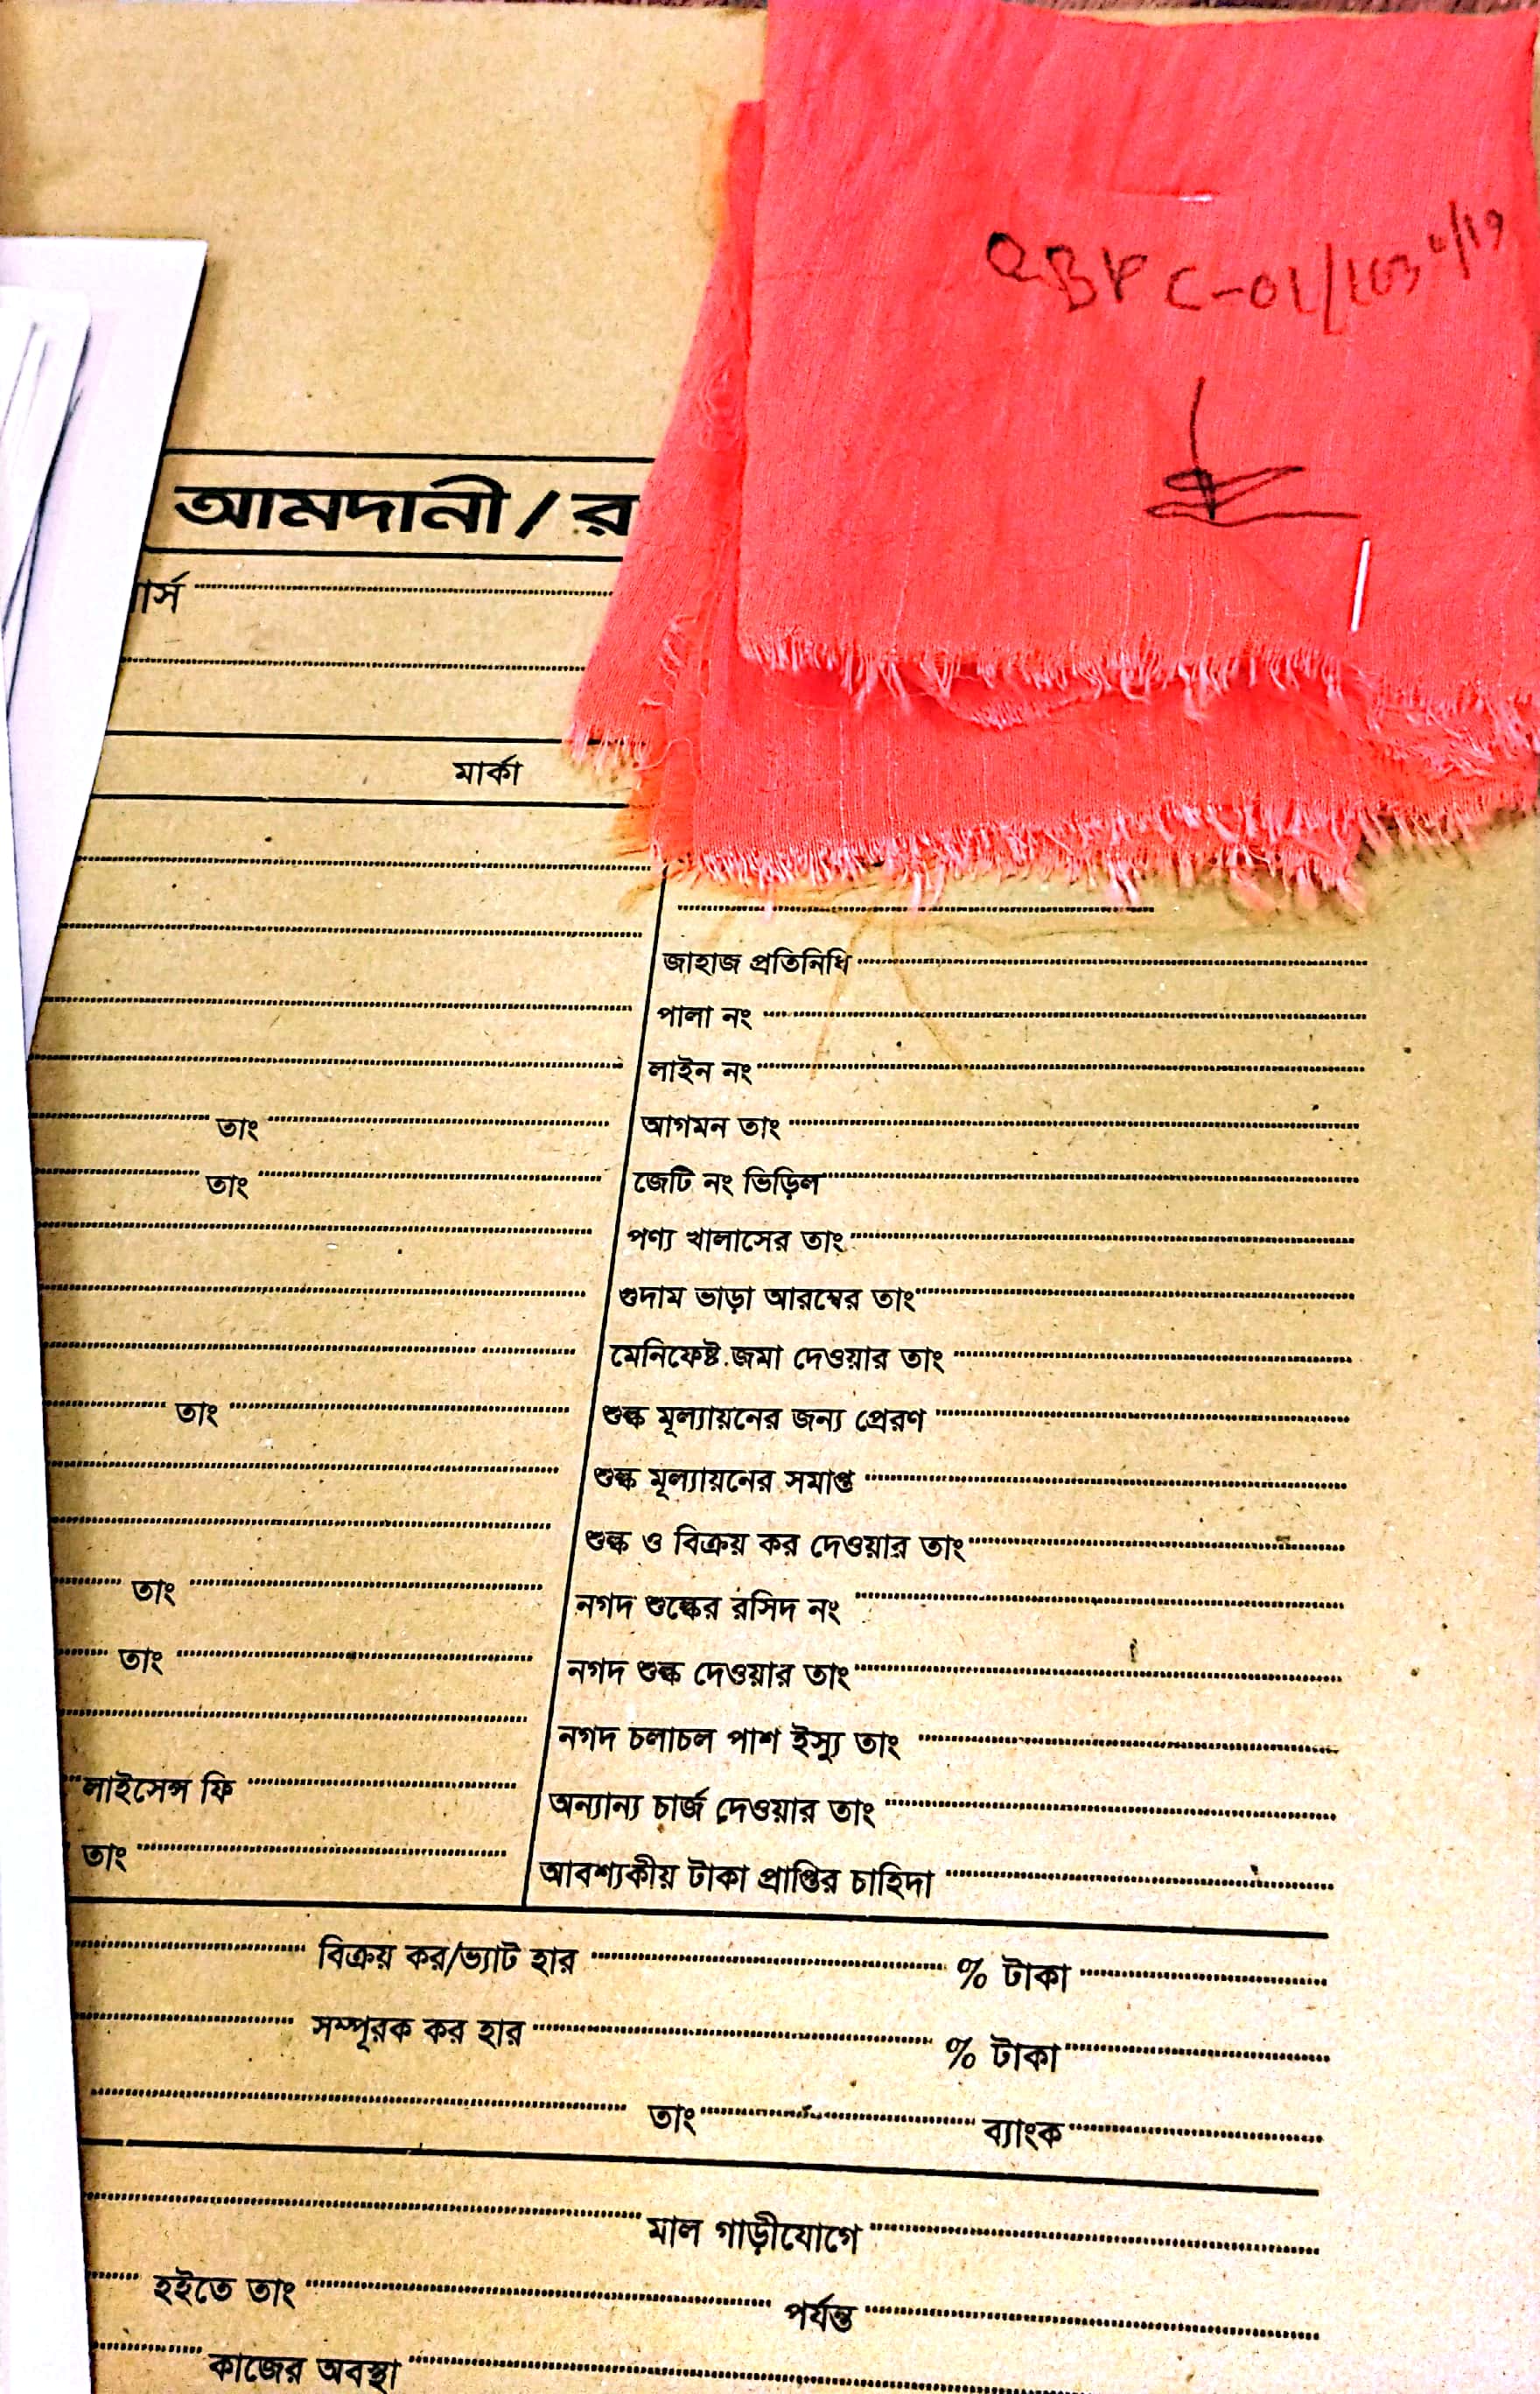 আমদানী / র
র্স
মার্কা
জাহাজ প্রতিনিধি
পালা নং
লাইন নং
তাং আগমন তাং
তাং জেটি নং ভিড়িল
পণ্য খালাসের তাং
গুদাম ভাড়া আরম্বের তাং
মেনিফেষ্ট জমা দেওয়ার তাং
তাং শুল্ক মূল্যায়নের জন্য প্রেরণ
শুল্ক মূল্যায়নের সমাপ্ত
শুল্ক ও বিক্রয় কর দেওয়ার তাং
তাং নগদ শুল্কের রসিদ নং
তাং নগদ শুল্ক দেওয়ার তাং
নগদ চলাচল পাশ ইস্যু তাং
লাইসেন্স ফি অন্যান্য চার্জ দেওয়ার তাং
তাং আবশ্যকীয় টাকা প্রাপ্তির চাহিদা
বিক্রয় কর/ভ্যাট হার % টাকা
সম্পূরক কর হার % টাকা
তাং ব্যাংক
মাল গাড়ীযোগে
হইতে তাং পর্যন্ত
কাজের অবস্থা